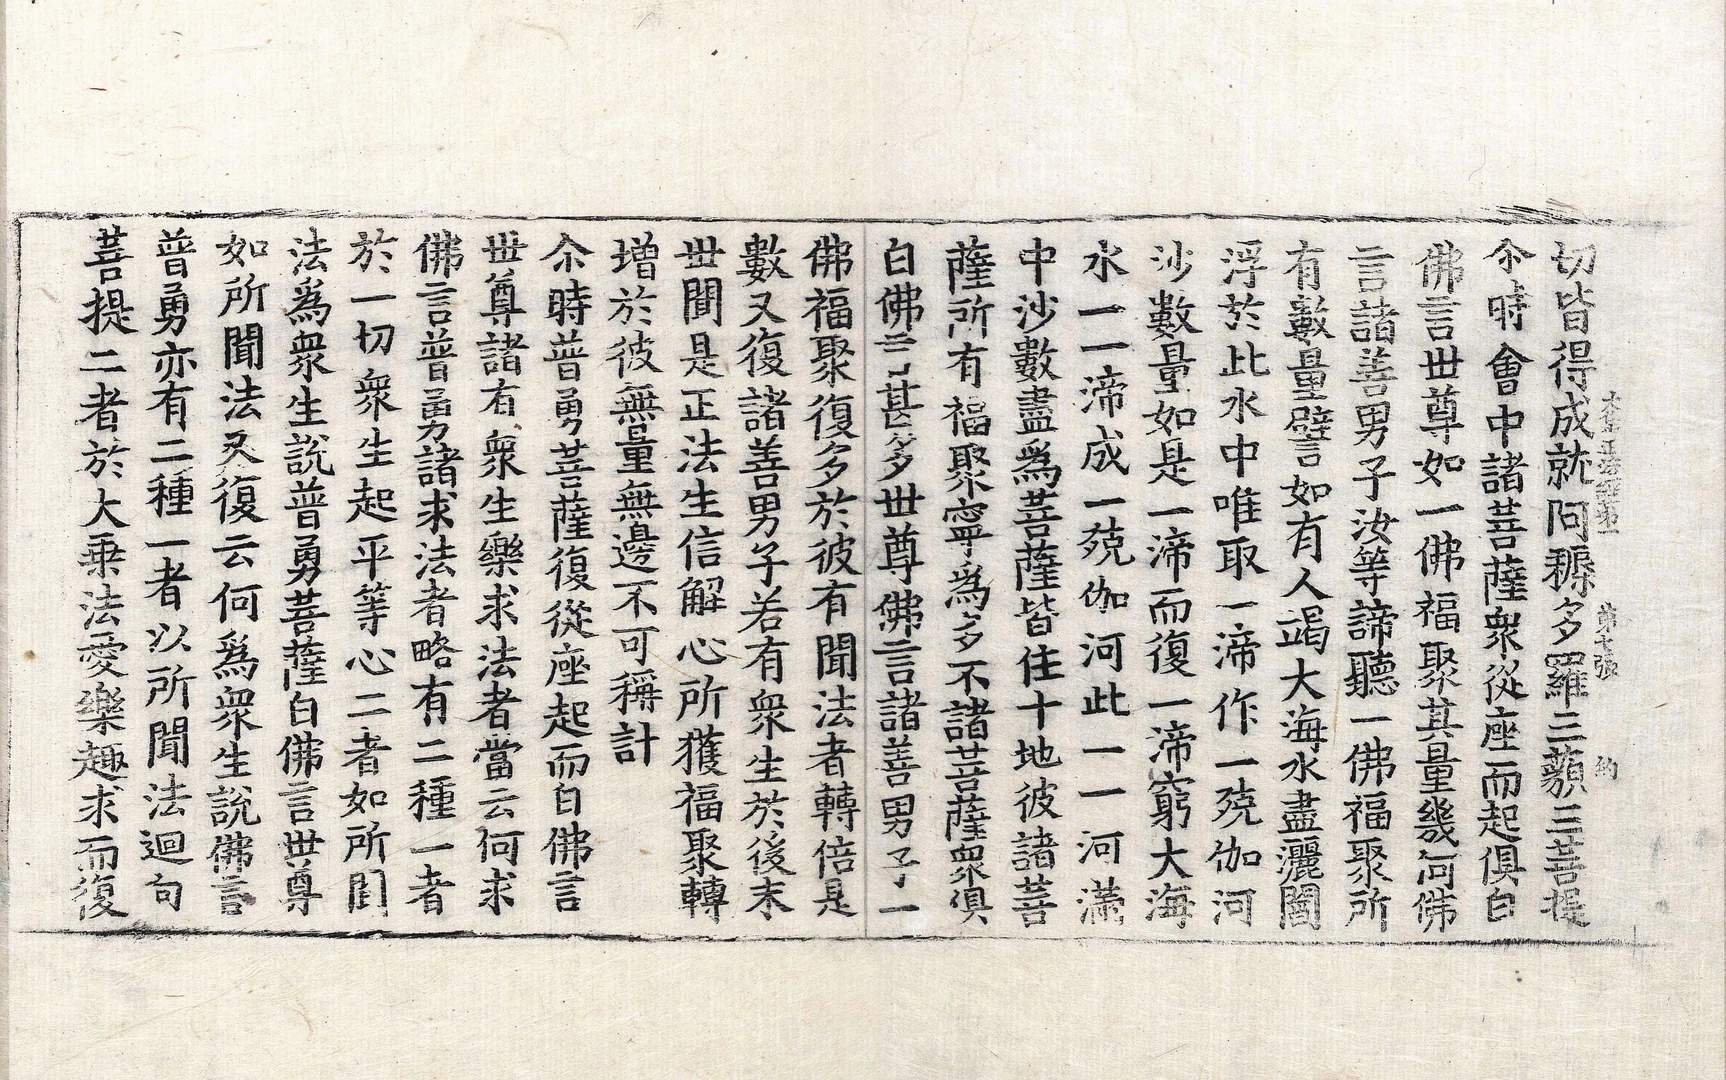 切皆得成就阿耨多羅三藐三菩提
尒時會中諸菩薩衆從座而起俱白
佛言世尊如一佛福聚其量幾何佛
言諸善男子汝等諦聽一佛福聚所
有數量譬如有人竭大海水盡灑閻
浮於此水中唯取一渧作一殑伽河
沙數量如是一渧而復一渧窮大海
水一一渧成一殑伽河此一一河滿
中沙數盡爲菩薩皆住十地彼諸菩
薩所有福聚寧爲多不諸菩薩衆俱
白佛言甚多世尊佛言諸善男子一
佛福聚復多於彼有聞法者轉倍是
數又復諸善男子若有衆生於後末
世聞是正法生信解心所獲福聚轉
增於彼無量無邊不可稱計
尒時普勇菩薩復從座起而白佛言
世尊諸有衆生樂求法者當云何求
佛言普勇諸求法者略有二種一者
於一切衆生起平等心二者如所聞
法爲衆生說普勇菩薩白佛言世尊
如所聞法又復云何爲衆生說佛言
普勇亦有二種一者以所聞法迴向
菩提二者於大乘法愛樂趣求而復
第七張 約